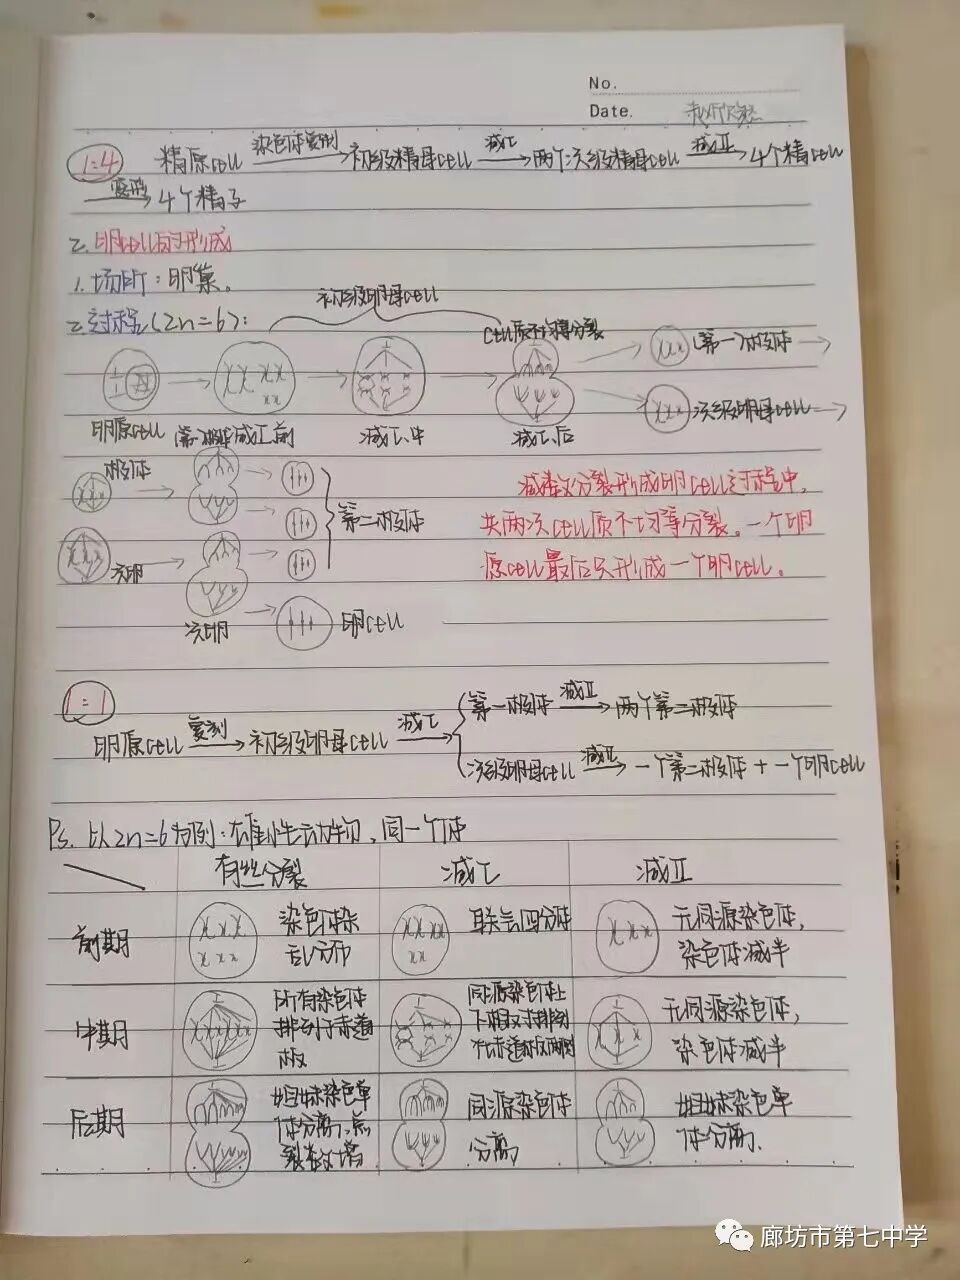 No.
Date.
1:4 精原cell 染色体复制→初级精母cell 减Ⅰ→两个次级精母cell 减Ⅱ→4个精cell
变形→4个精子
2. 卵cell的形成
1. 场所：卵巢。
2. 过程(2n=6)：
初级卵母cell
cell质不均等分裂
(第一)极体→
次级卵母cell→
卵原cell 减Ⅰ前 减Ⅰ、中 减Ⅰ、后
极体
第二极体
次卵
次卵
卵cell
减数分裂形成卵cell过程中,
共两次cell质不均等分裂。一个卵
原cell最后只形成一个卵cell。
1:1
卵原cell 复制→初级卵母cell 减Ⅰ→
第一极体 减Ⅱ→两个第二极体
次级卵母cell 减Ⅱ→一个第二极体+一个卵cell
Ps. 以2n=6为例：雄性动物,同一个体
有丝分裂 减Ⅰ 减Ⅱ
前期
染色体杂
乱分布
联会四分体
无同源染色体,
染色体减半
中期
所有染色体
排列于赤道
板
同源染色体上
下相对排列
在赤道板两侧
无同源染色体,
染色体减半
后期
姐妹染色单
体分离,
同源染色体
分离
姐妹染色单
体分离.
廊坊市第七中学